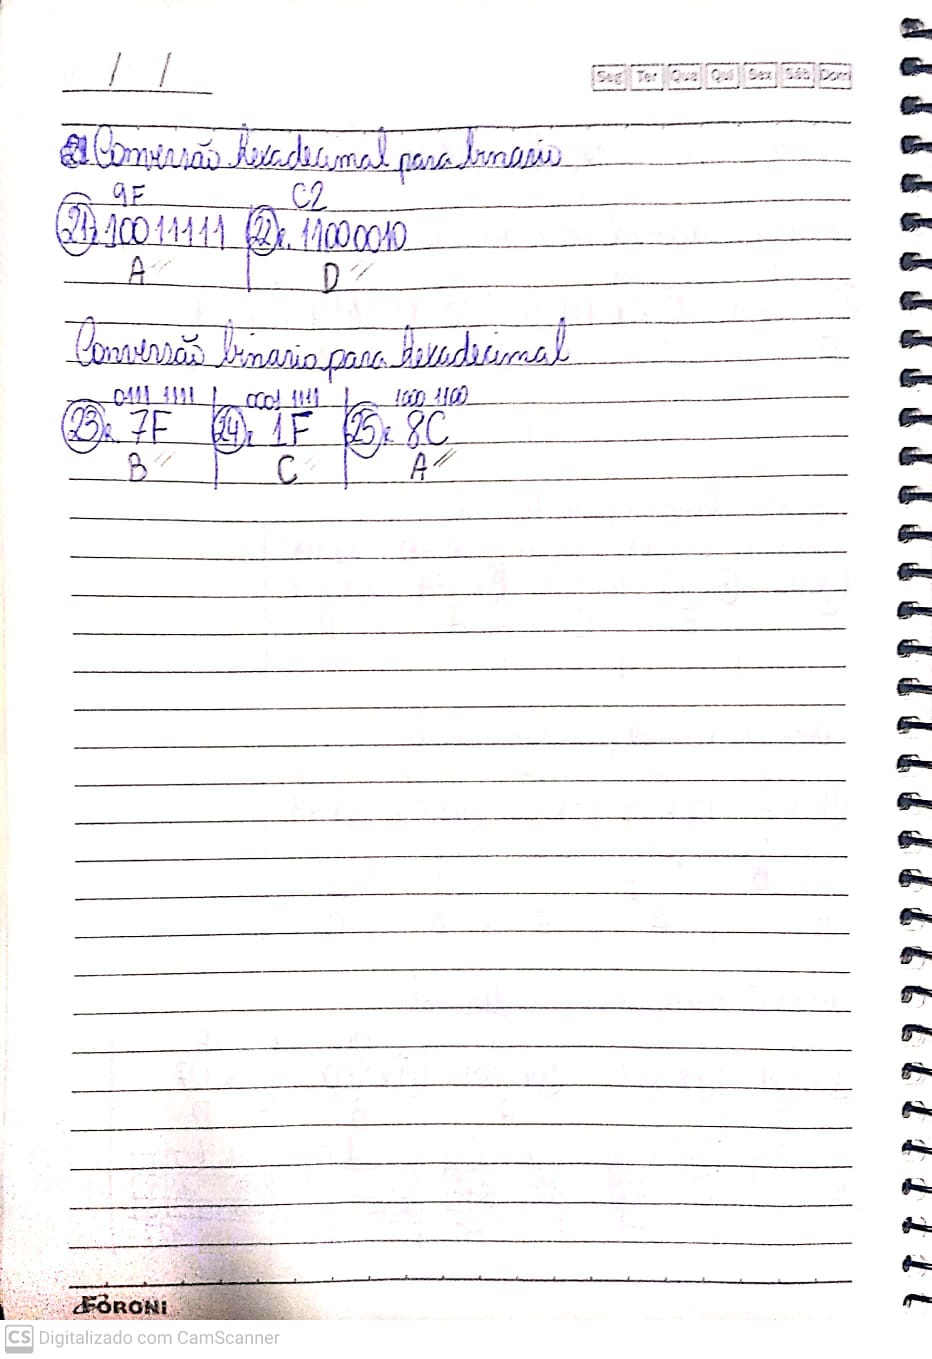 / /
Seg Ter Qua Qui Sex Sáb Dom
Conversão hexadecimal para binario
9F C2
21) 10011111 22) R. 11000010
A D
Conversão binario para hexadecimal
0111 1111 0001 1111 1000 1100
23) R. 7F 24) R. 1F 25) R. 8C
B C A
FORONI
CS Digitalizado com CamScanner